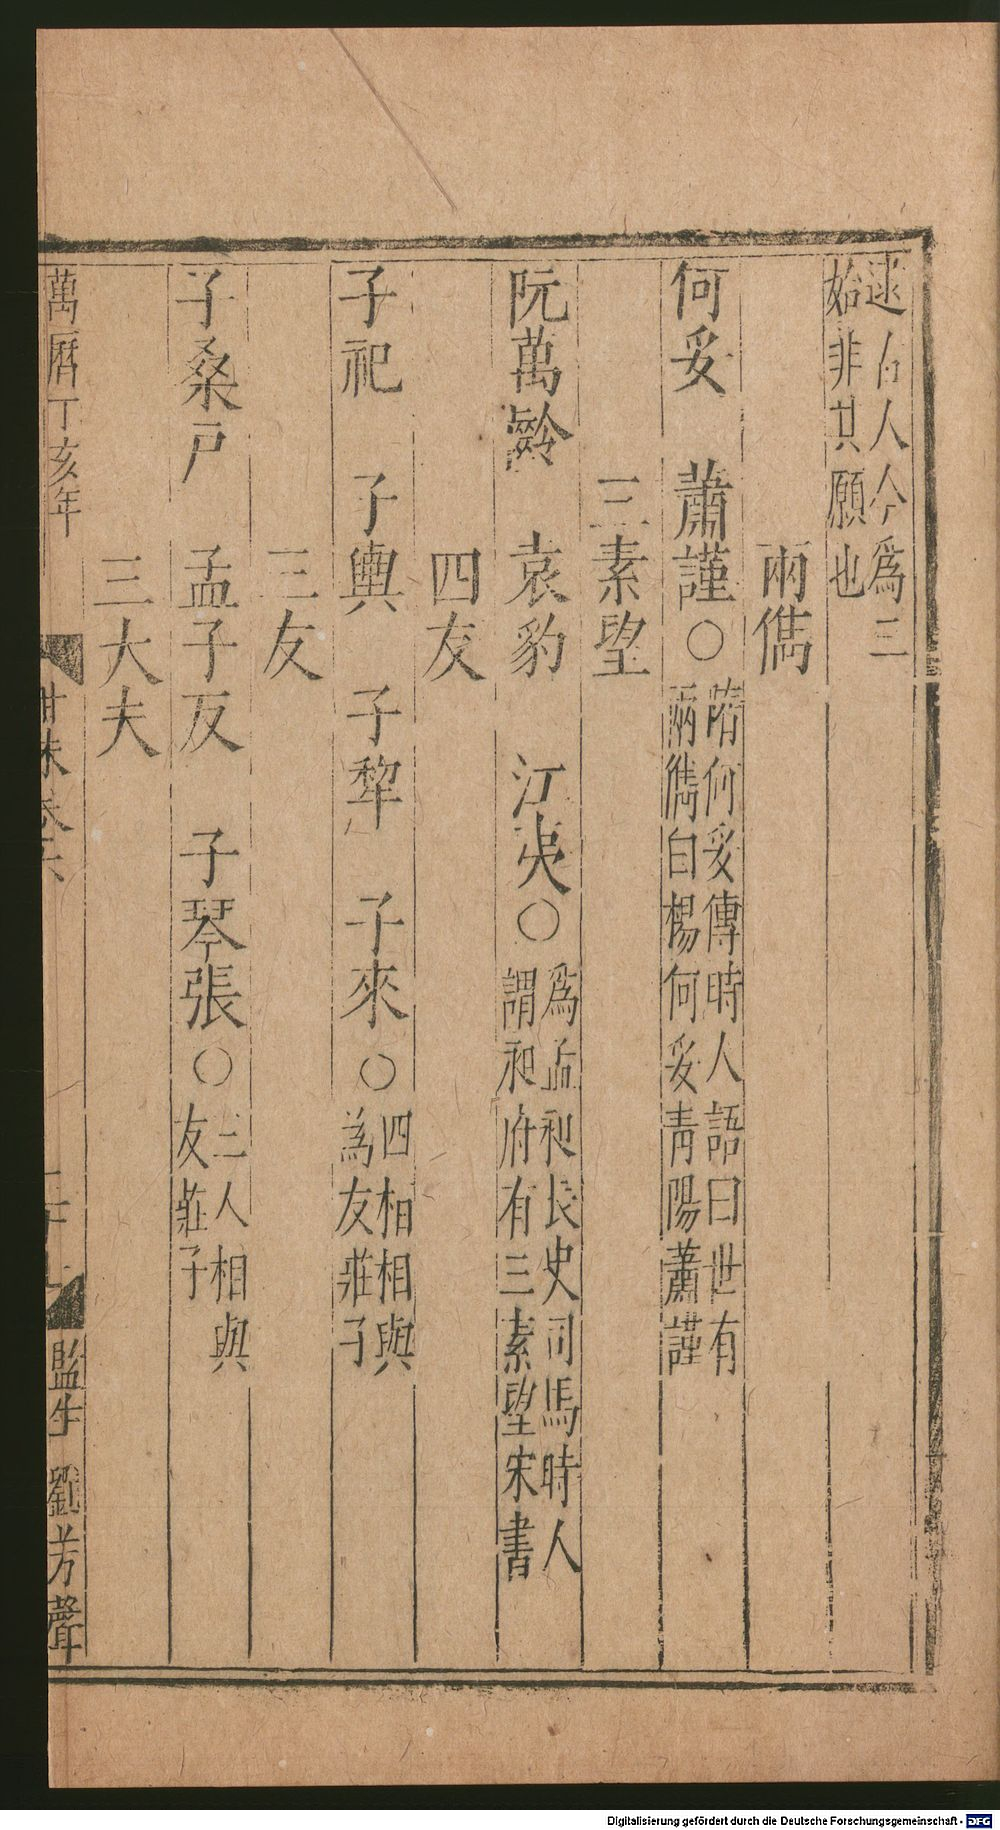 逑古人今爲三
始非其願也
兩儁
何妥　蕭謹○隋何妥傳時人語曰世有
兩儁白楊何妥青陽蕭謹
三素望
阮萬齡　袁豹　江夷○爲孟昶長史司馬時人
謂昶府有三素望宋書
四友
子祀　子輿　子犂　子來○四相相與
為友莊子
三友
子桑戸　孟子反　子琴張○三人相與
友莊子
三大夫
萬曆丁亥年　卷六　監生　劉芳聲
Digitalisierung gefördert durch die Deutsche Forschungsgemeinschaft - DFG